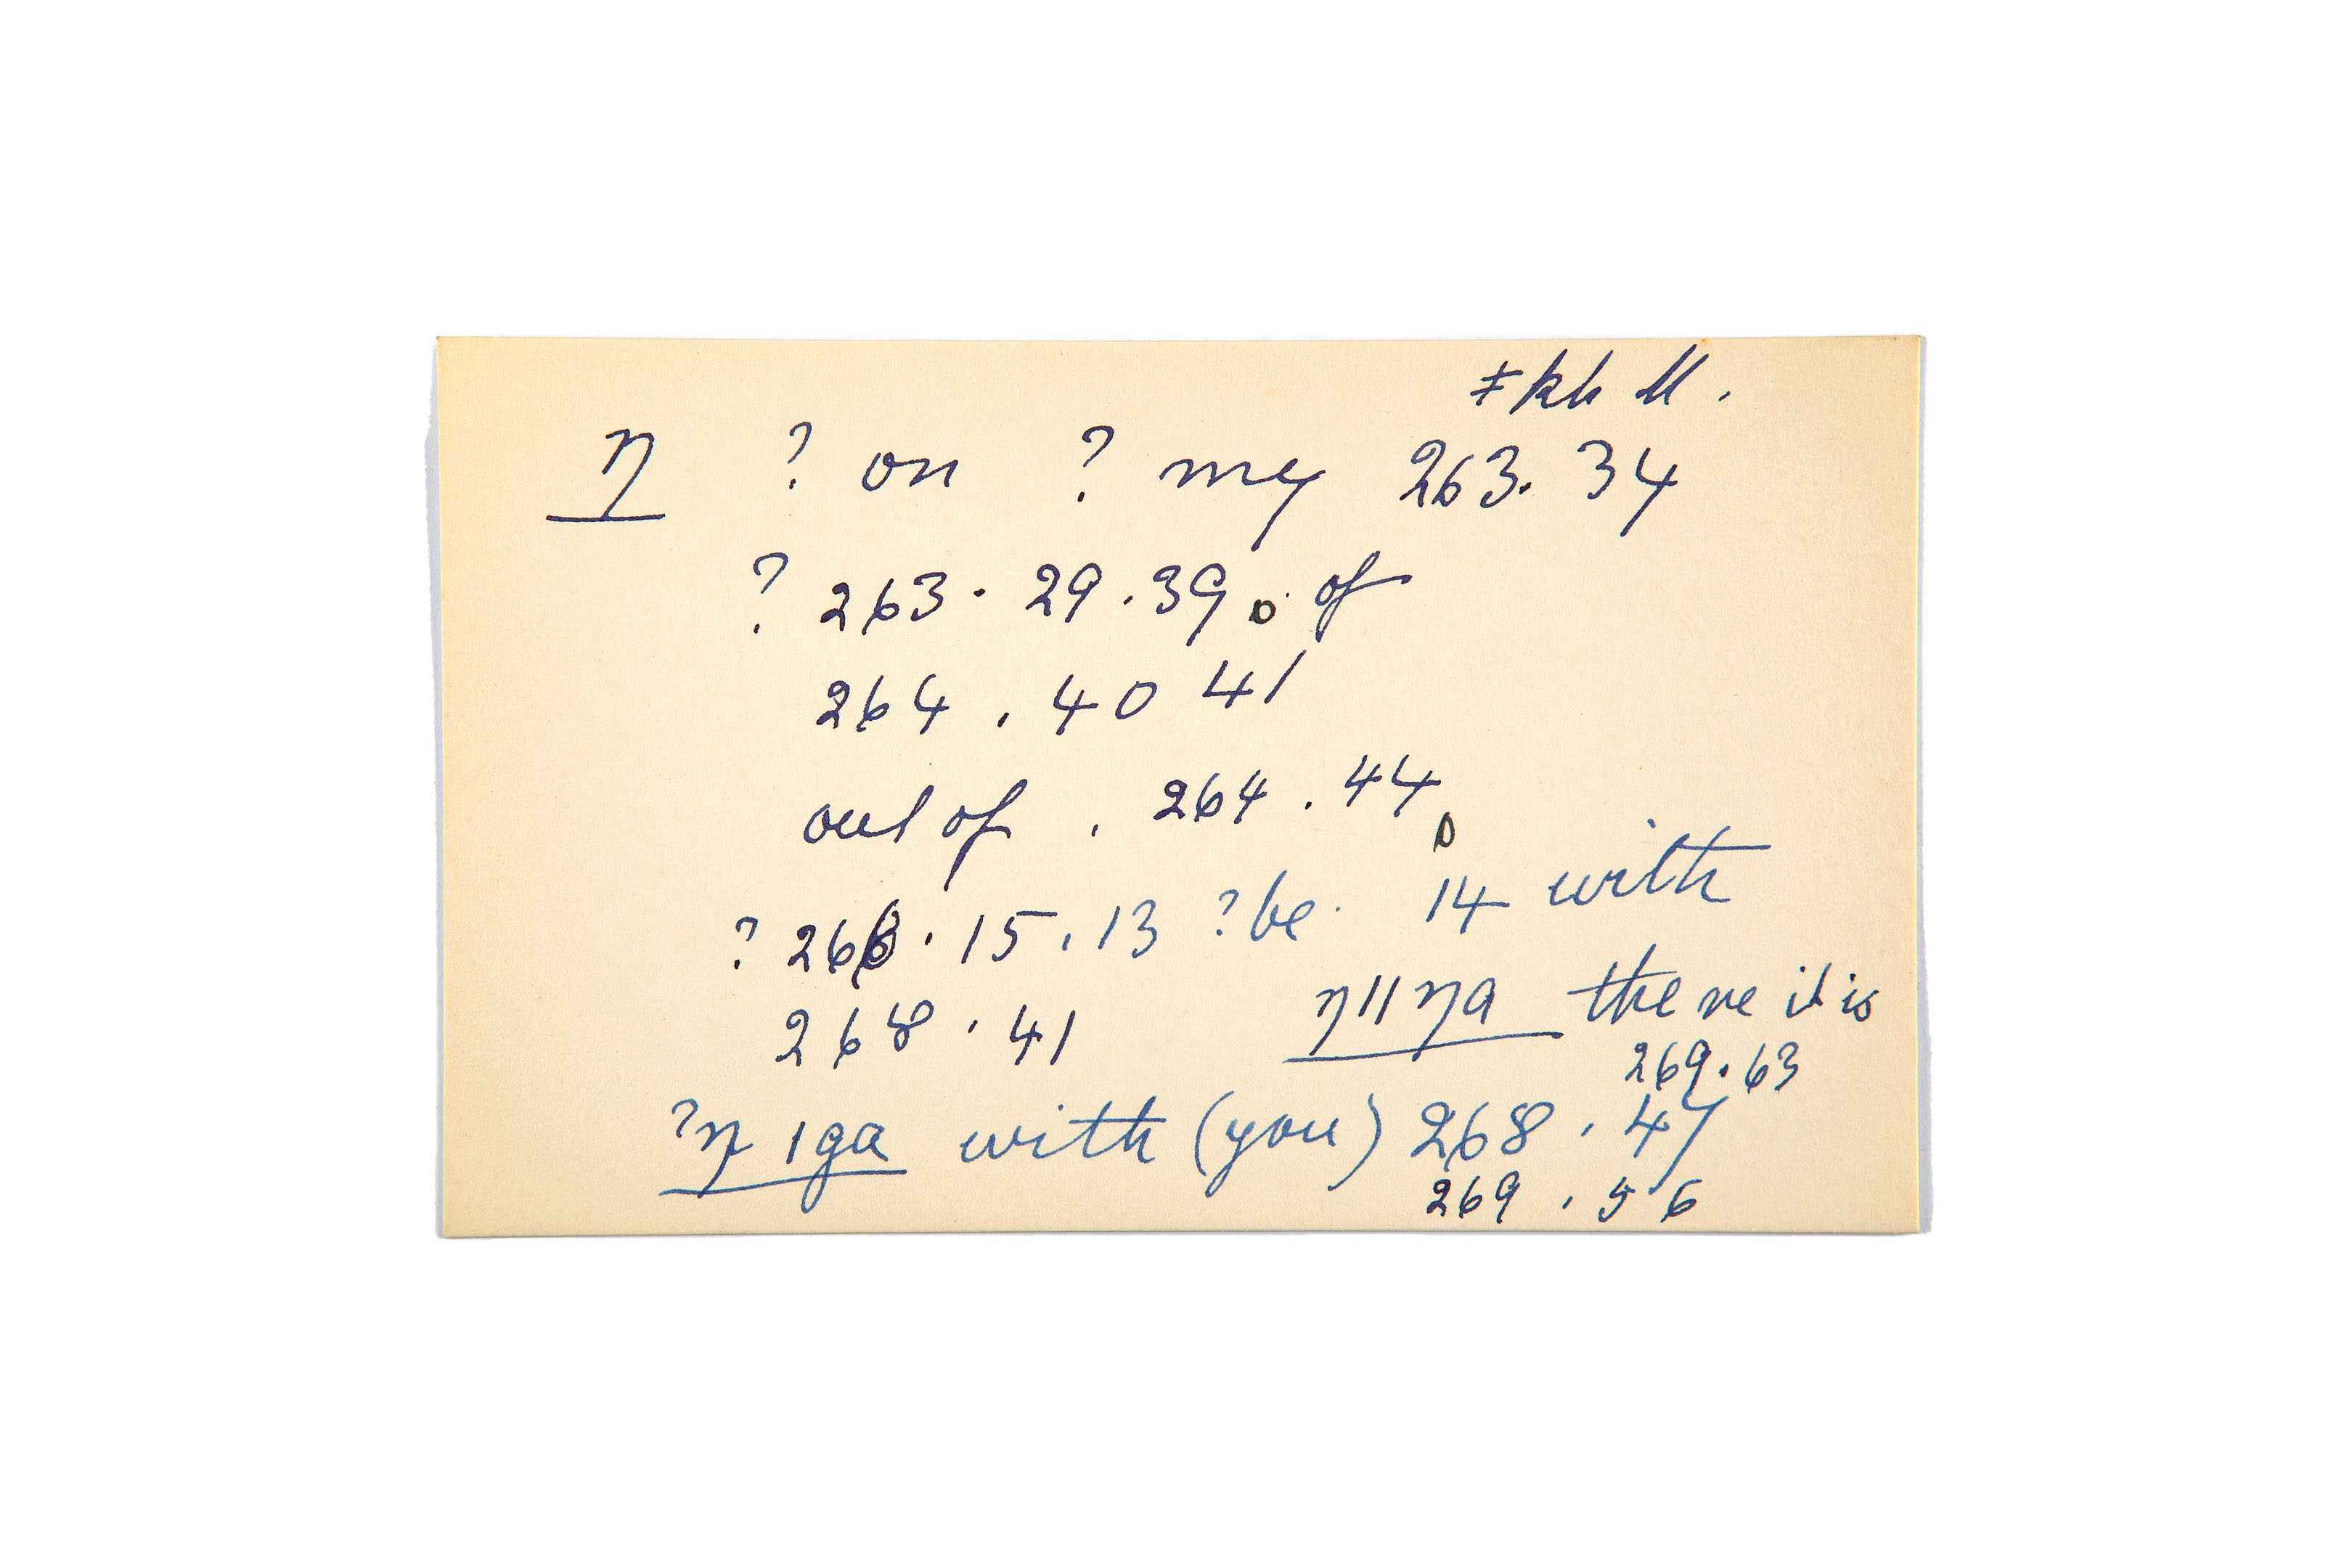 ǂkh ll.
ŋ ? on ? my 263. 34
? 263 · 29 . 39 o of
264 . 40 41
out of . 264 . 44 o
? 266 . 15 . 13 ? be · 14 with
268 . 41 ŋ || ŋa there it is
269 . 63
?ŋ |ga with (you) 268 . 47
269 . 56